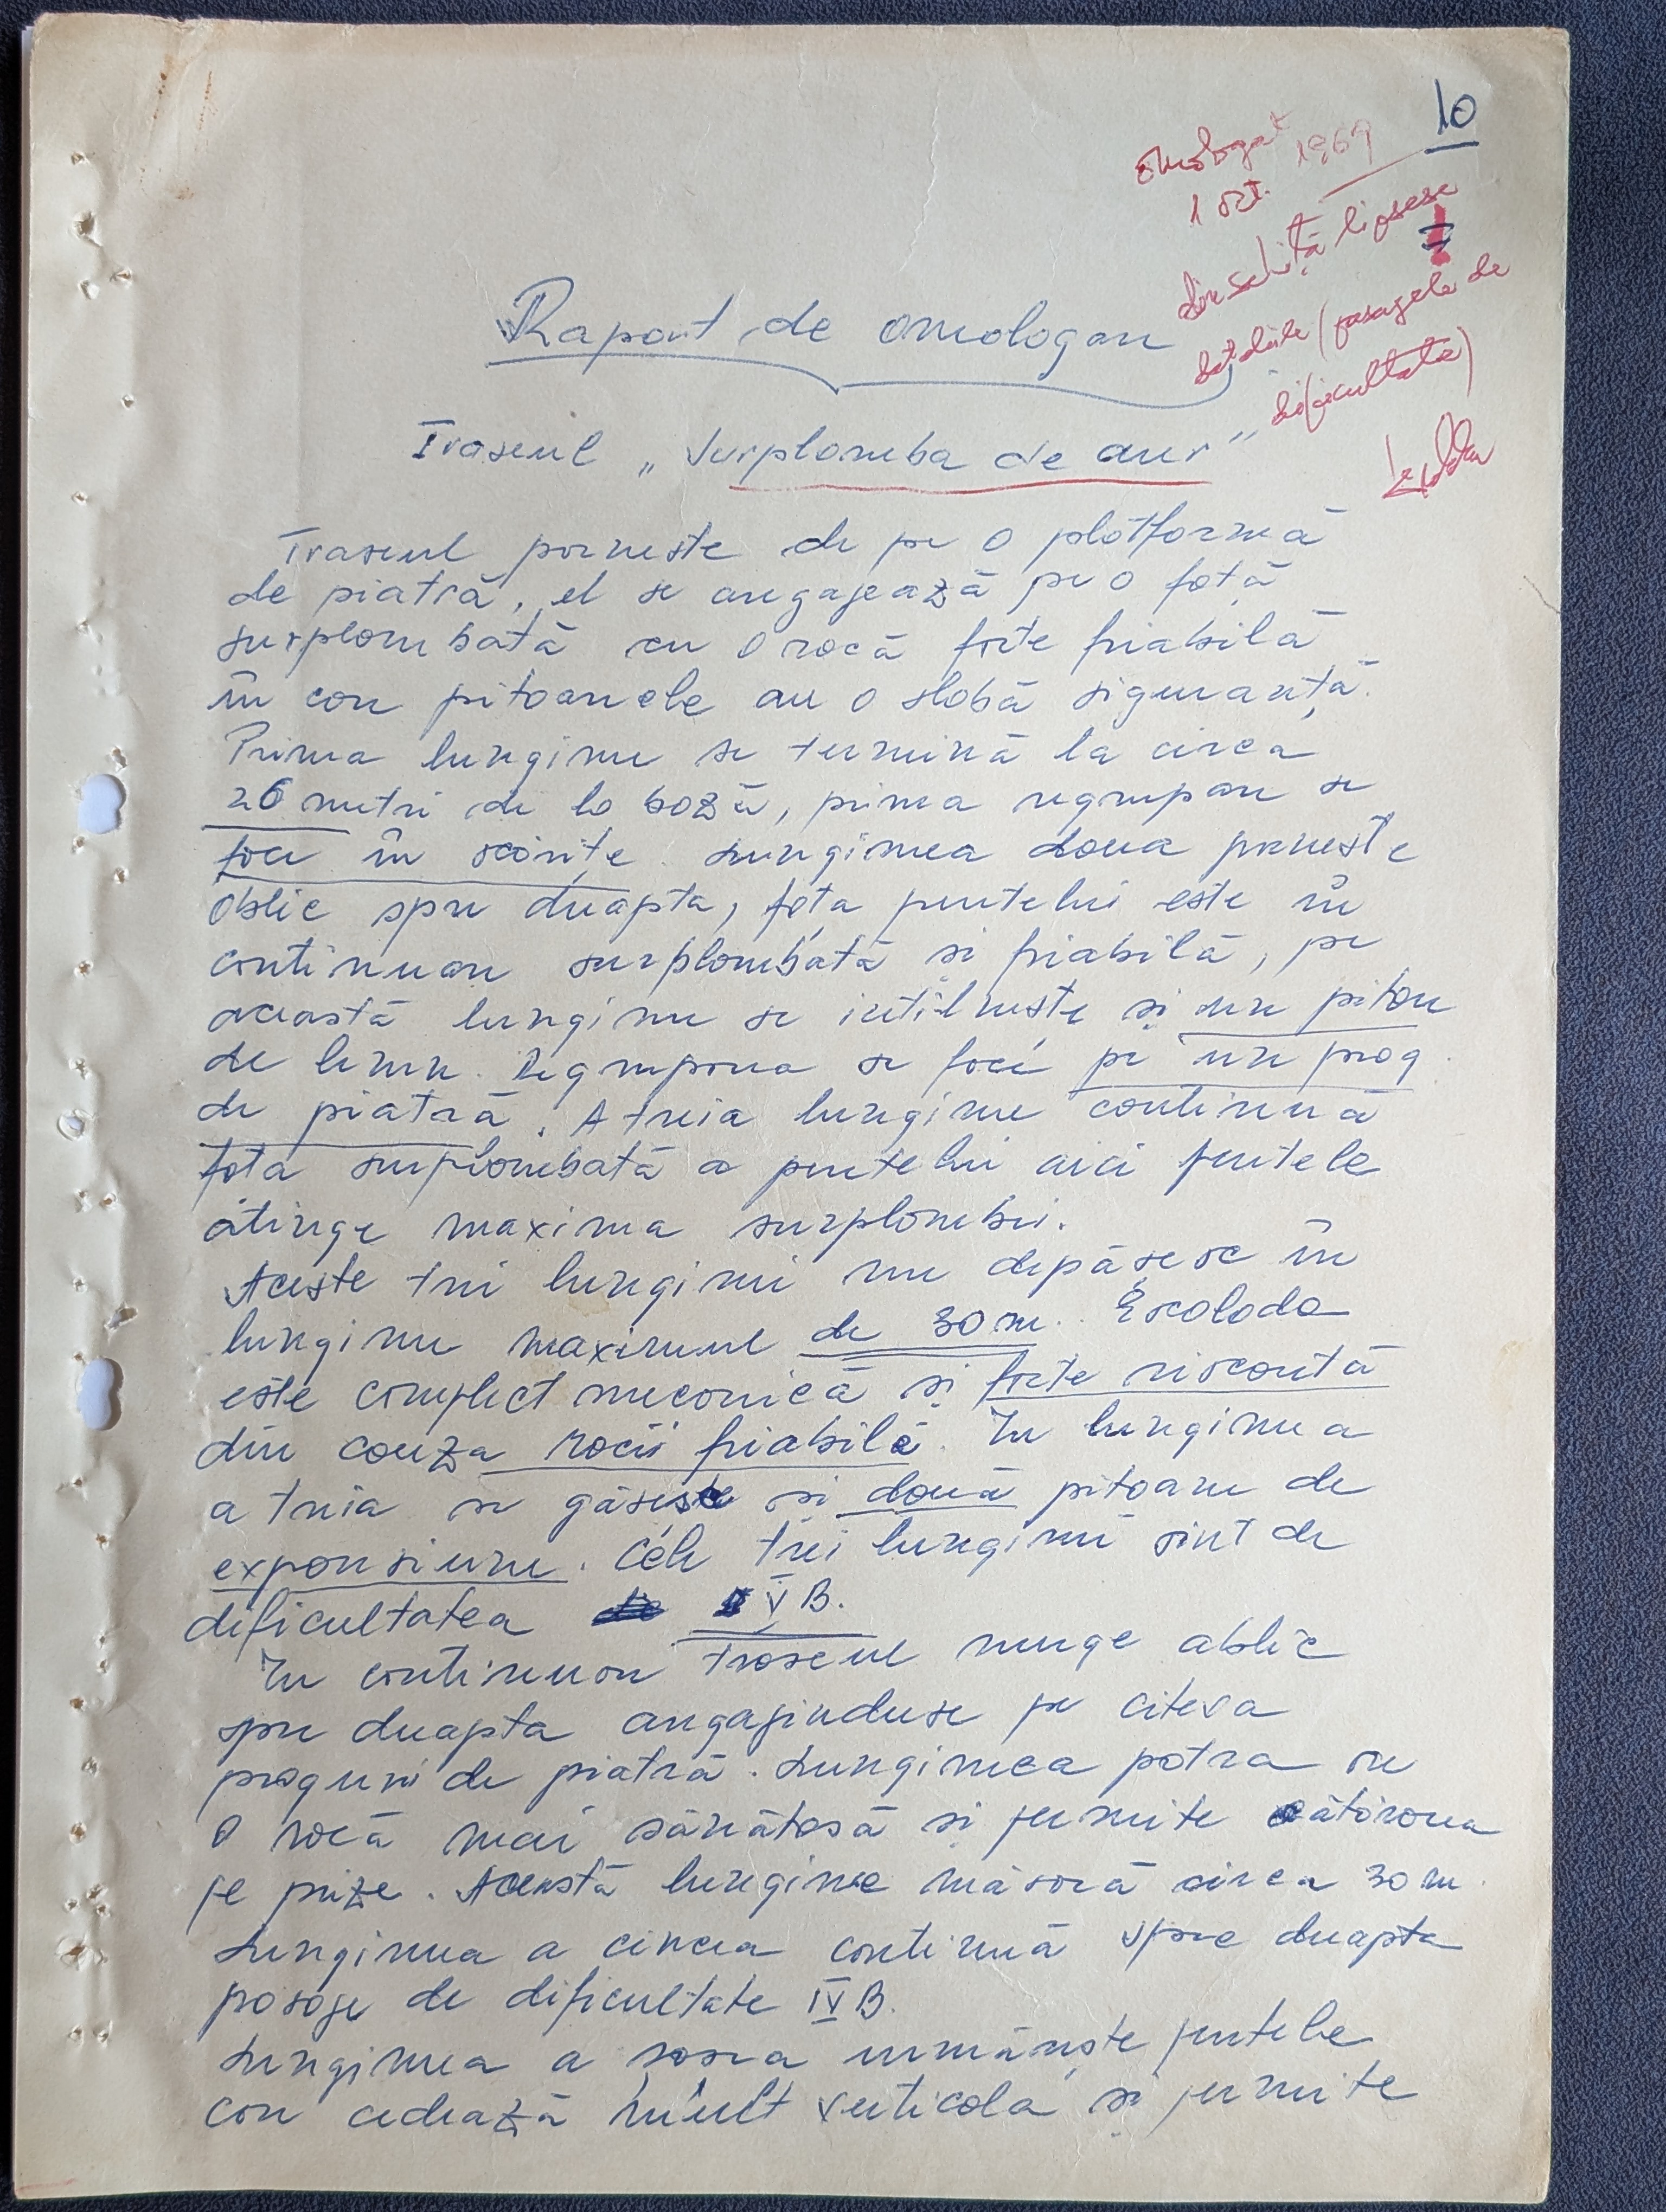 10
omologat
1 oct. 1969
din schiță lipsesc
detaliile (pasagele de
dificultate)
Raport de omologare
Traseul „Surplomba de aur"
Traseul pornește de pe o platformă
de piatră, el se angajează pe o față
surplombată cu o rocă forte friabilă
în care pitoanele au o slabă siguranță.
Prima lungime se termină la circa
26 metri de la bază, prima regrupare se
face în scărițe. Lungimea doua pornește
oblic spre dreapta, fața peretelui este în
continuare surplombată și friabilă, pe
această lungime se intîlnește și un piton
de lemn. Regruparea se face pe un prag
de piatră. A treia lungime continuă
fata surplombată a peretelui aici peretele
atinge maxima surplombei.
Aceste trei lungimi nu depășesc în
lungime maximul de 30 m. Escalada
este complect mecanică și forte riscantă
din cauza rocii friabilă. In lungimea
a treia se găsește si două pitoane de
expansiune. Cele trei lungimi sint de
dificultatea V B.
In continuare traseul merge oblic
spre dreapta angajinduse pe citeva
praguri de piatră. Lungimea patra are
o rocă mai sănătosă si permite cățărarea
pe prize. Această lungime măsoră circa 30 m.
Lungimea a cincea continuă spre dreapta
pasaje de dificultate IV B.
Lungimea a șasea urmărește peretele
care cedează mult verticala și permite